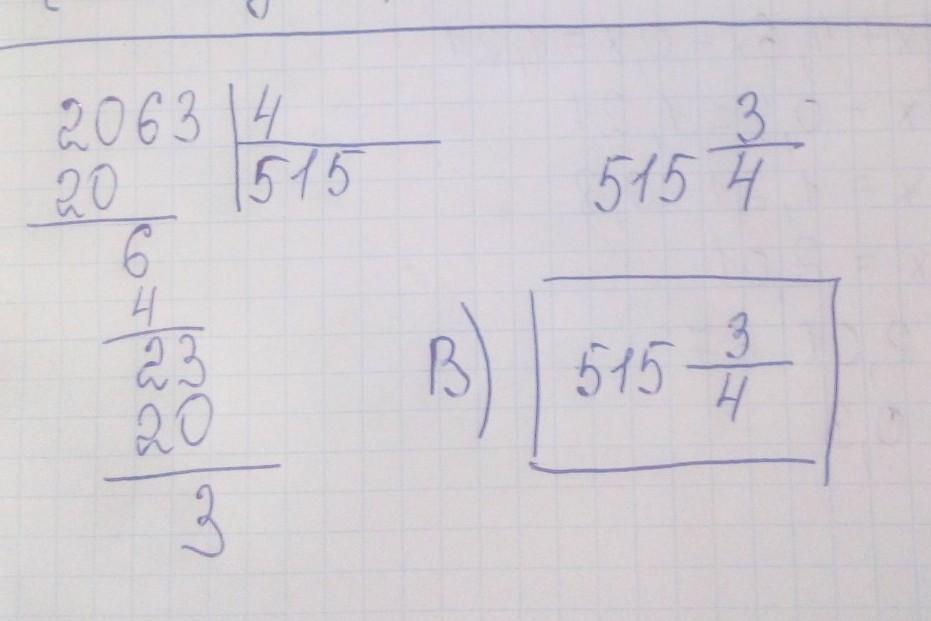 2063 | 4
20 | 515
6
4
23
20
3
515 3/4
B) 515 3/4